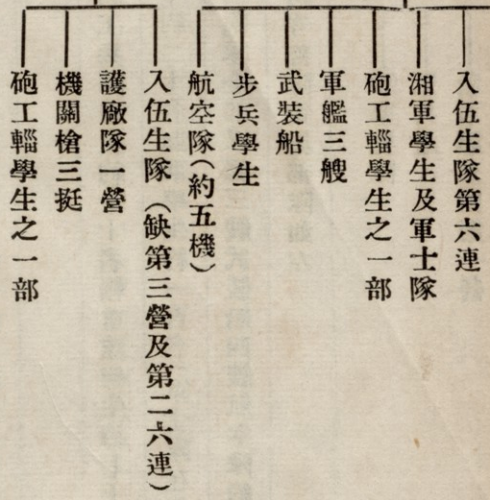 入伍生隊第六連
湘軍學生及軍士隊
砲工輜學生之一部
軍艦三艘
武裝船
步兵學生
航空隊(約五機)
入伍生隊(缺第三營及第二六連)
護廠隊一營
機關槍三挺
砲工輜學生之一部